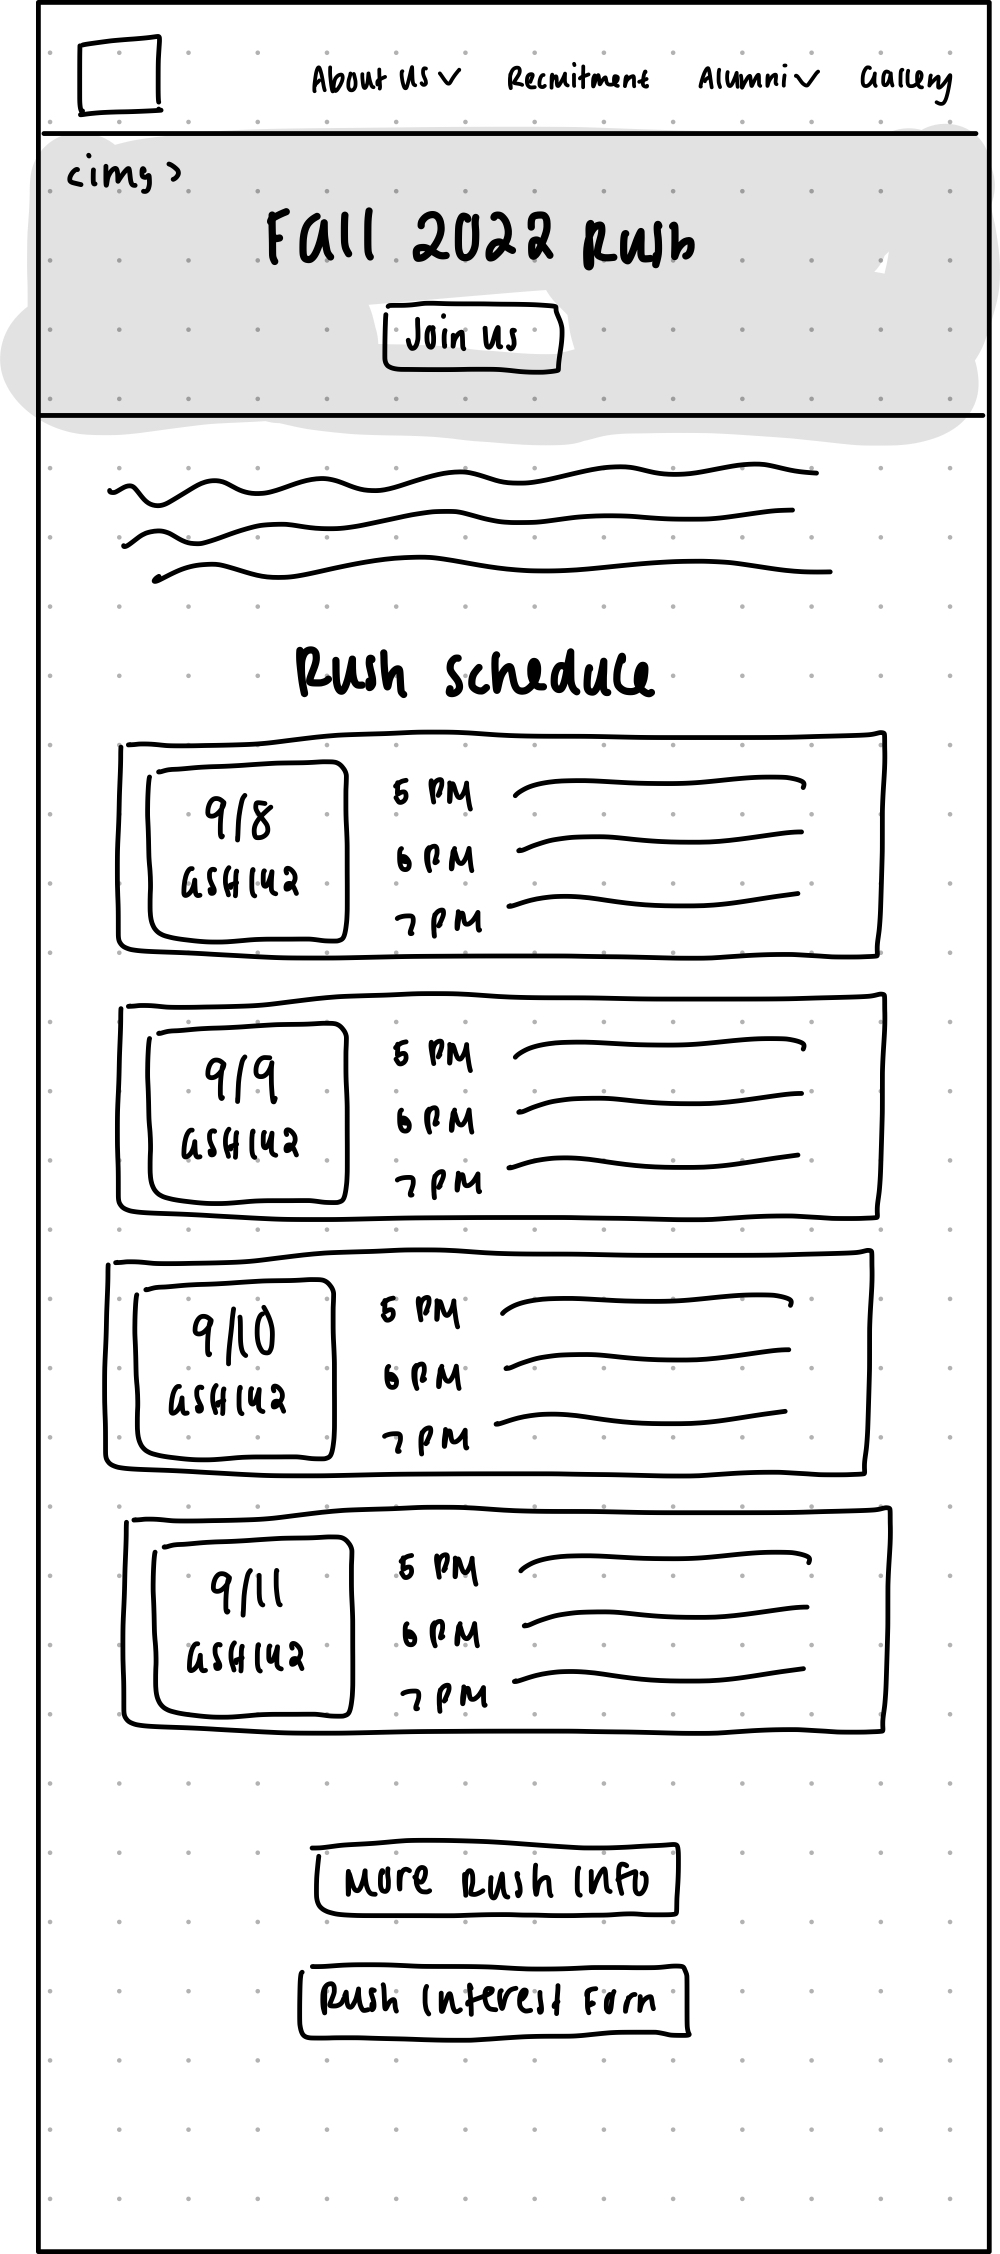 About Us Recruitment Alumni Gallery
<img>
Fall 2022 Rush
Join Us
Rush Schedule
9/8
ASH 142
5 PM
6 PM
7 PM
9/9
ASH 142
5 PM
6 PM
7 PM
9/10
ASH 142
5 PM
6 PM
7 PM
9/11
ASH 142
5 PM
6 PM
7 PM
More Rush Info
Rush Interest Form